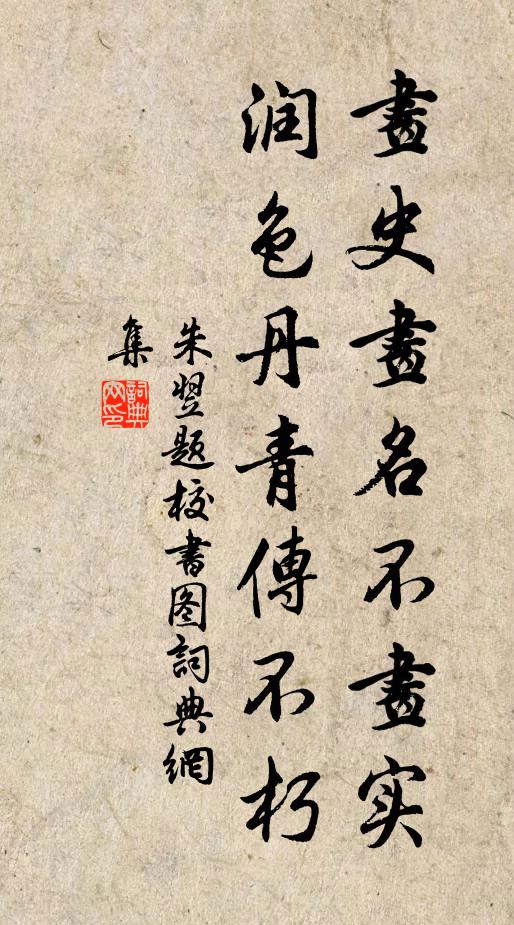 畫史畫名不畫实
润色丹青傳不朽
朱翌题校書图詞典網
集
詞典網印